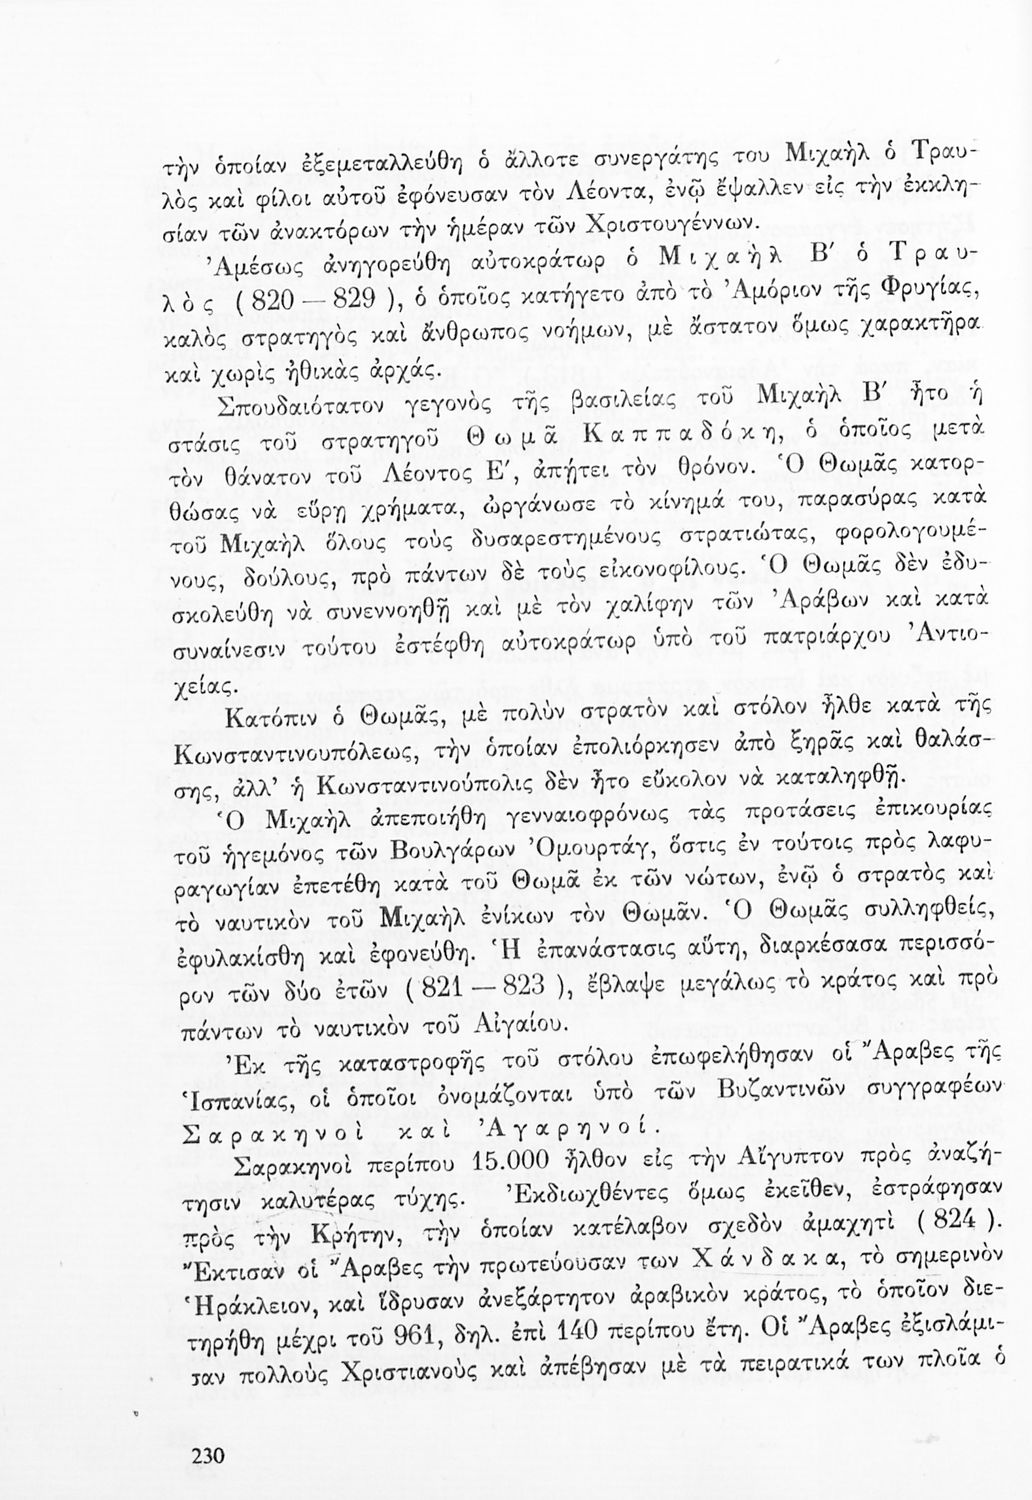 τὴν ὁποίαν ἐξεμεταλλεύθη ὁ ἄλλοτε συνεργάτης του Μιχαὴλ ὁ Τραυ-
λὸς καὶ φίλοι αὐτοῦ ἐφόνευσαν τὸν Λέοντα, ἐνῷ ἔψαλλεν εἰς τὴν ἐκκλη-
σίαν τῶν ἀνακτόρων τὴν ἡμέραν τῶν Χριστουγέννων.
Ἀμέσως ἀνηγορεύθη αὐτοκράτωρ ὁ Μιχαὴλ Β′ ὁ Τραυ-
λὸς ( 820 — 829 ), ὁ ὁποῖος κατήγετο ἀπὸ τὸ Ἀμόριον τῆς Φρυγίας,
καλὸς στρατηγὸς καὶ ἄνθρωπος νοήμων, μὲ ἄστατον ὅμως χαρακτῆρα
καὶ χωρὶς ἠθικὰς ἀρχάς.
Σπουδαιότατον γεγονὸς τῆς βασιλείας τοῦ Μιχαὴλ Β′ ἦτο ἡ
στάσις τοῦ στρατηγοῦ Θωμᾶ Καππαδόκη, ὁ ὁποῖος μετὰ
τὸν θάνατον τοῦ Λέοντος Ε′, ἀπῄτει τὸν θρόνον. Ὁ Θωμᾶς κατορ-
θώσας νὰ εὕρῃ χρήματα, ὠργάνωσε τὸ κίνημά του, παρασύρας κατὰ
τοῦ Μιχαὴλ ὅλους τοὺς δυσαρεστημένους στρατιώτας, φορολογουμέ-
νους, δούλους, πρὸ πάντων δὲ τοὺς εἰκονοφίλους. Ὁ Θωμᾶς δὲν ἐδυ-
σκολεύθη νὰ συνεννοηθῇ καὶ μὲ τὸν χαλίφην τῶν Ἀράβων καὶ κατὰ
συναίνεσιν τούτου ἐστέφθη αὐτοκράτωρ ὑπὸ τοῦ πατριάρχου Ἀντιο-
χείας.
Κατόπιν ὁ Θωμᾶς, μὲ πολὺν στρατὸν καὶ στόλον ἦλθε κατὰ τῆς
Κωνσταντινουπόλεως, τὴν ὁποίαν ἐπολιόρκησεν ἀπὸ ξηρᾶς καὶ θαλάσ-
σης, ἀλλ’ ἡ Κωνσταντινούπολις δὲν ἦτο εὔκολον νὰ καταληφθῇ.
Ὁ Μιχαὴλ ἀπεποιήθη γενναιοφρόνως τὰς προτάσεις ἐπικουρίας
τοῦ ἡγεμόνος τῶν Βουλγάρων Ὀμουρτάγ, ὅστις ἐν τούτοις πρὸς λαφυ-
ραγωγίαν ἐπετέθη κατὰ τοῦ Θωμᾶ ἐκ τῶν νώτων, ἐνῷ ὁ στρατὸς καὶ
τὸ ναυτικὸν τοῦ Μιχαὴλ ἐνίκων τὸν Θωμᾶν. Ὁ Θωμᾶς συλληφθείς,
ἐφυλακίσθη καὶ ἐφονεύθη. Ἡ ἐπανάστασις αὕτη, διαρκέσασα περισσό-
ρον τῶν δύο ἐτῶν ( 821 — 823 ), ἔβλαψε μεγάλως τὸ κράτος καὶ πρὸ
πάντων τὸ ναυτικὸν τοῦ Αἰγαίου.
Ἐκ τῆς καταστροφῆς τοῦ στόλου ἐπωφελήθησαν οἱ Ἄραβες τῆς
Ἱσπανίας, οἱ ὁποῖοι ὀνομάζονται ὑπὸ τῶν Βυζαντινῶν συγγραφέων
Σαρακηνοὶ καὶ Ἀγαρηνοί.
Σαρακηνοὶ περίπου 15.000 ἦλθον εἰς τὴν Αἴγυπτον πρὸς ἀναζή-
τησιν καλυτέρας τύχης. Ἐκδιωχθέντες ὅμως ἐκεῖθεν, ἐστράφησαν
πρὸς τὴν Κρήτην, τὴν ὁποίαν κατέλαβον σχεδὸν ἀμαχητὶ ( 824 ).
Ἔκτισαν οἱ Ἄραβες τὴν πρωτεύουσαν των Χάνδακα, τὸ σημερινὸν
Ἡράκλειον, καὶ ἵδρυσαν ἀνεξάρτητον ἀραβικὸν κράτος, τὸ ὁποῖον διε-
τηρήθη μέχρι τοῦ 961, δηλ. ἐπὶ 140 περίπου ἔτη. Οἱ Ἄραβες ἐξισλάμι-
σαν πολλοὺς Χριστιανοὺς καὶ ἀπέβησαν μὲ τὰ πειρατικά των πλοῖα ὁ
230